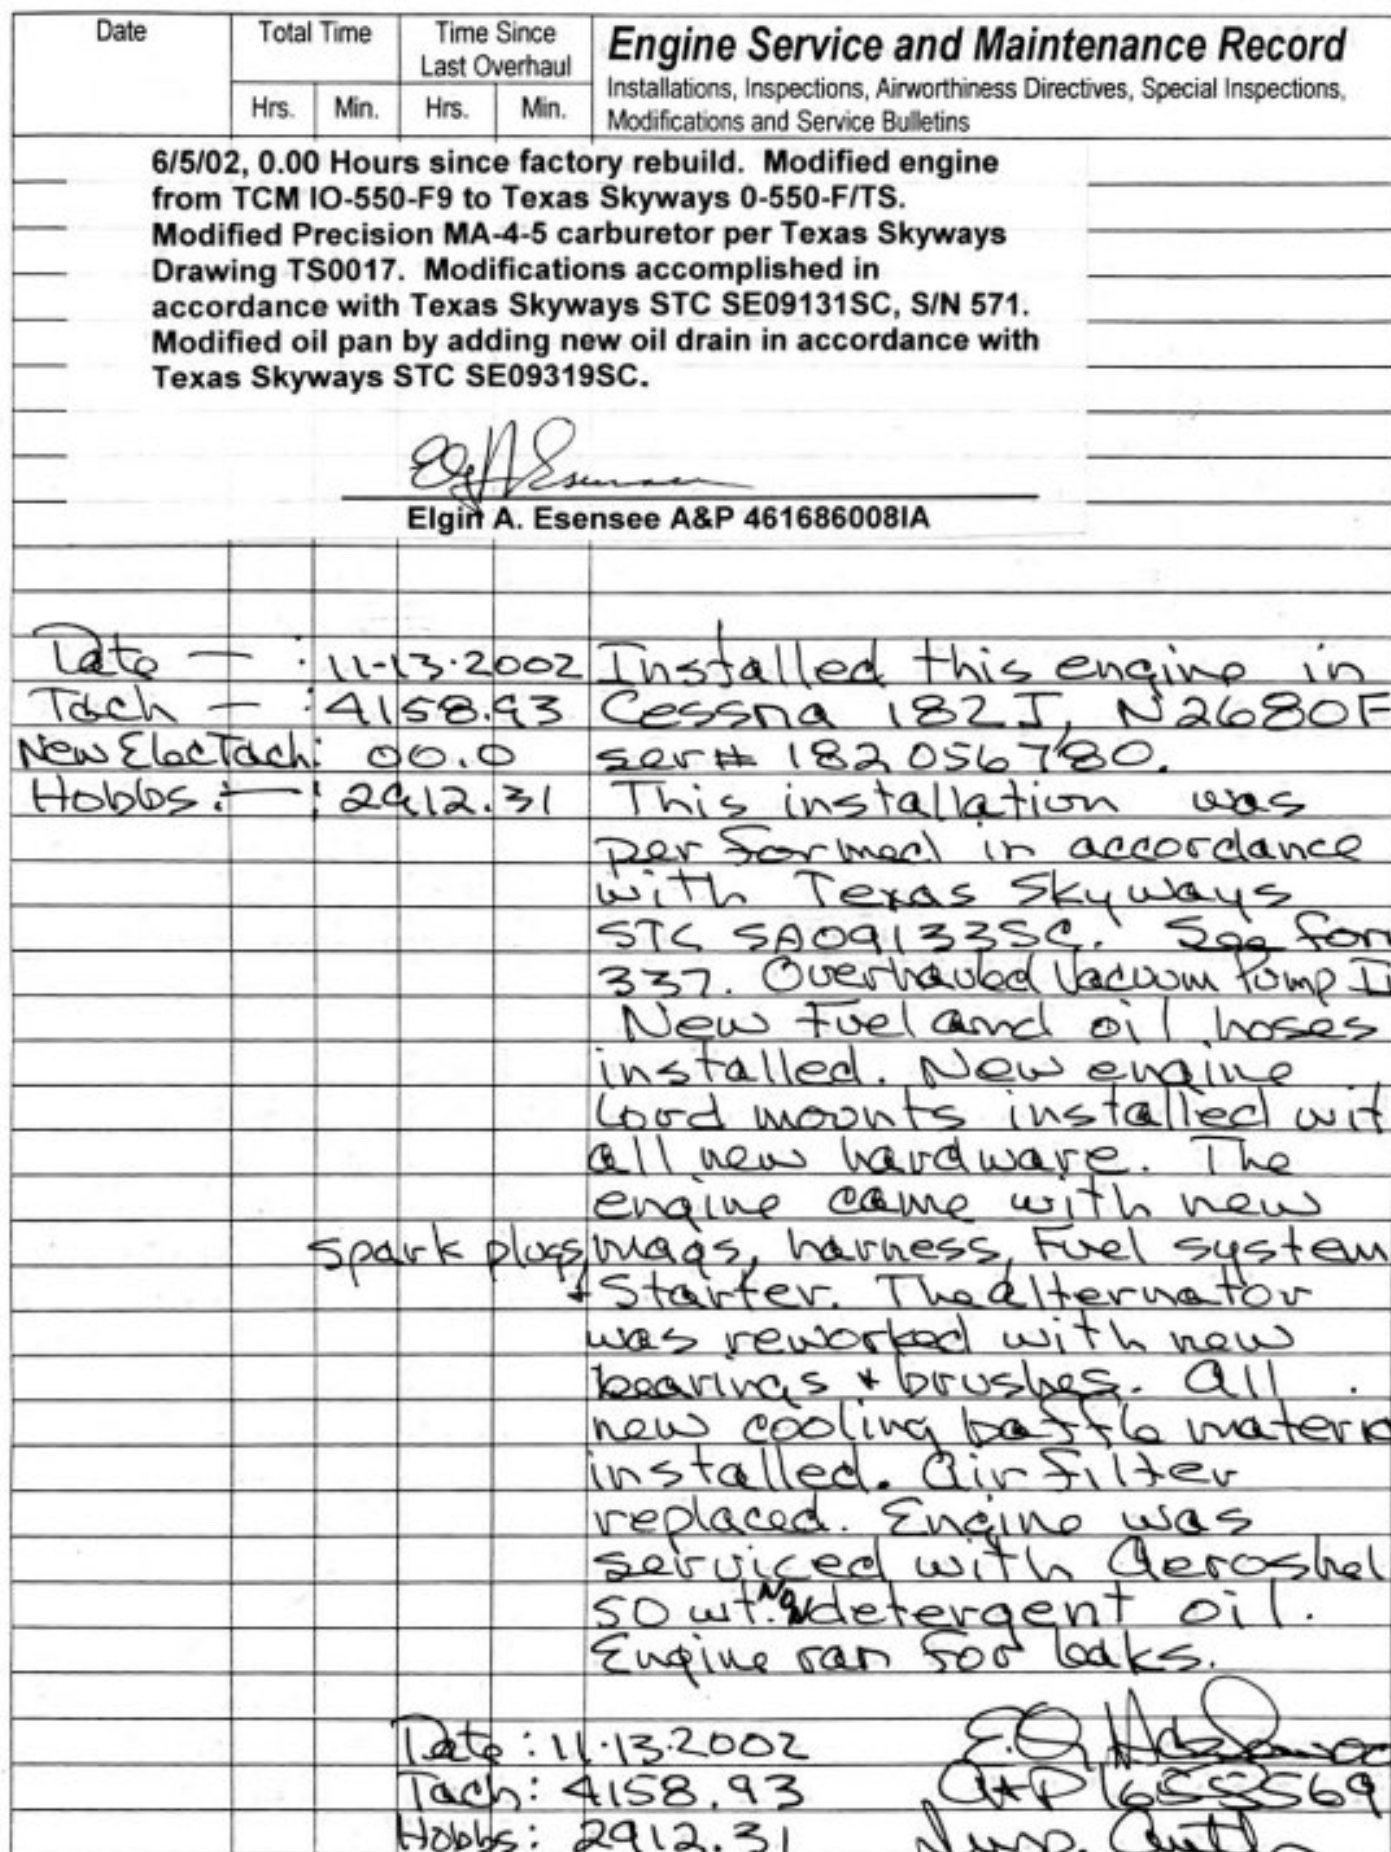 Date Total Time Time Since Last Overhaul Engine Service and Maintenance Record
Hrs. Min. Hrs. Min. Installations, Inspections, Airworthiness Directives, Special Inspections,
Modifications and Service Bulletins
6/5/02, 0.00 Hours since factory rebuild. Modified engine
from TCM IO-550-F9 to Texas Skyways 0-550-F/TS.
Modified Precision MA-4-5 carburetor per Texas Skyways
Drawing TS0017. Modifications accomplished in
accordance with Texas Skyways STC SE09131SC, S/N 571.
Modified oil pan by adding new oil drain in accordance with
Texas Skyways STC SE09319SC.
Elgin A. Esensee A&P 461686008IA
Date — : 11-13-2002 Installed this engine in
Tach — : 4158.93 Cessna 182J, N2680F
New Elec Tach: 00.0 ser# 182056780.
Hobbs: — : 2912.31 This installation was
performed in accordance
with Texas Skyways
STC SA09133SC. See form
337. Overhauled Vacuum Pump I
New Fuel and oil hoses
installed. New engine
Lord mounts installed wit
all new hardware. The
engine came with new
spark plugs, mags, harness, Fuel system
+ Starter. The alternator
was reworked with new
bearings + brushes. All
new cooling baffle materi
installed. Air filter
replaced. Engine was
serviced with Aeroshel
50 wt. Non detergent oil.
Engine ran for leaks.
Date: 11-13-2002
Tach: 4158.93 A+P 1655569
Hobbs: 2912.31 Insp. Auth